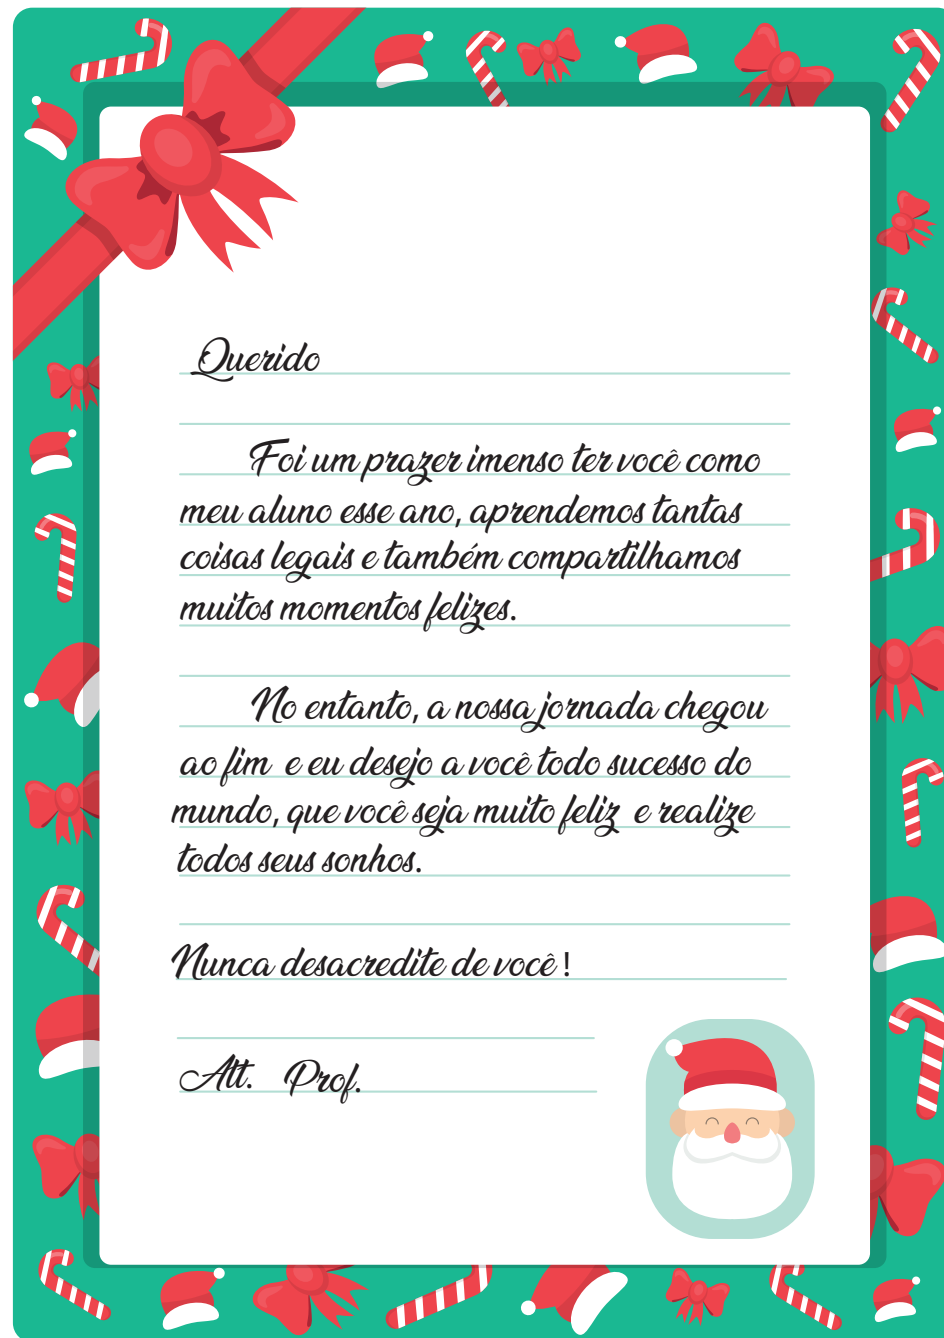 Querido
Foi um prazer imenso ter você como
meu aluno esse ano, aprendemos tantas
coisas legais e também compartilhamos
muitos momentos felizes.
No entanto, a nossa jornada chegou
ao fim e eu desejo a você todo sucesso do
mundo, que você seja muito feliz e realize
todos seus sonhos.
Nunca desacredite de você !
Att. Prof.